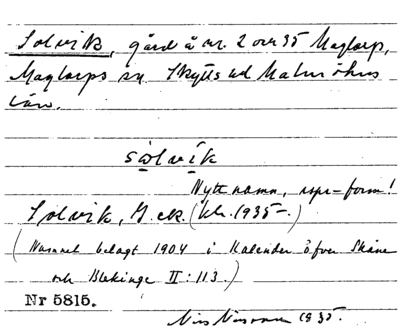 Solvik, gård å nr. 2 och 35 Maglarp,
Maglarps sn. Skytts hd Malmöhus
län.
sωlvík
Nytt namn, rspr-form!
Solvik, G. ek. (kh. 1935-.)
(Namnet belagt 1904 i Kalender öfver Skåne
och Blekinge II: 113.)
Nr 5815.
Nils Nilsson 1935.